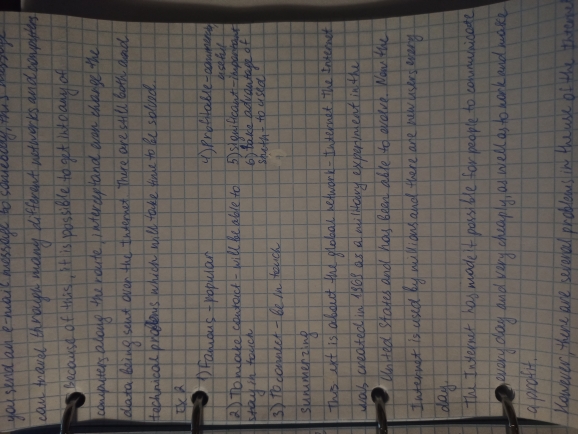 you send an e-mail message to somebody, this message
can travel through many different networks and computers
Because of this, it is possible to get into any of
computers along the route, intercept and even change the
data being sent over the Internet. There are still both and
technical problems which will take time to be solved.
Ex 2
1) Famous - popular
2) To make contact - will be able to
stay in touch
3) To connect - be in touch
4) Profitable - commercy
5) significant - important
6) take advantage of
smth - to used
summerizing
This is about the global network - Internet. The Internet
was created in 1969 as a military experiment in the
United States and has been able to evolve. Now the
Internet is used by millions and there are new users every
day.
The Internet has made it possible for people to communicate
every day and very cheaply, as well as to work and make
a profit.
However, there are several problems in the use of the Internet